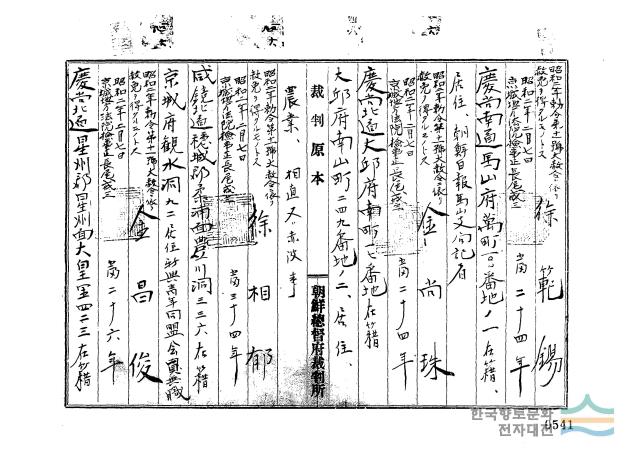 昭和二年勅令第十一號大赦令ニ依リ
赦免ヲ得タルモノトス
昭和二年二月七日
京城地方法院檢事正長尾戒三
徐範錫
當二十四年
慶尚南道馬山府萬町一〇番地ノ一在籍、
居住、朝鮮日報馬山支局記者
昭和二年勅令第十一號大赦令ニ依リ
赦免ヲ得タルモノトス
昭和二年二月七日
京城地方法院檢事正長尾戒三
金尚珠
當二十四年
慶尚北道大邱府南町一七番地在籍
大邱府南山町二四九番地ノ二、居住、
裁判原本
朝鮮總督府裁判所
農業、相直又ハ赤波事
徐相郁
當三十四年
昭和二年勅令第十一號大赦令ニ依リ
赦免ヲ得タルモノトス
昭和二年二月七日
京城地方法院檢事正長尾戒三
咸鏡北道穗城郡柔浦面豐川洞三三六在籍
京城府觀水洞九二居住新興青年同盟會員無職
昭和二年勅令第十一號大赦令ニ依リ
赦免ヲ得タルモノトス
昭和二年二月七日
京城地方法院檢事正長尾戒三
金昌俊
當二十六年
慶尚北道星州郡星州面大皇里四二三在籍
한국향토문화
전자대전
0541